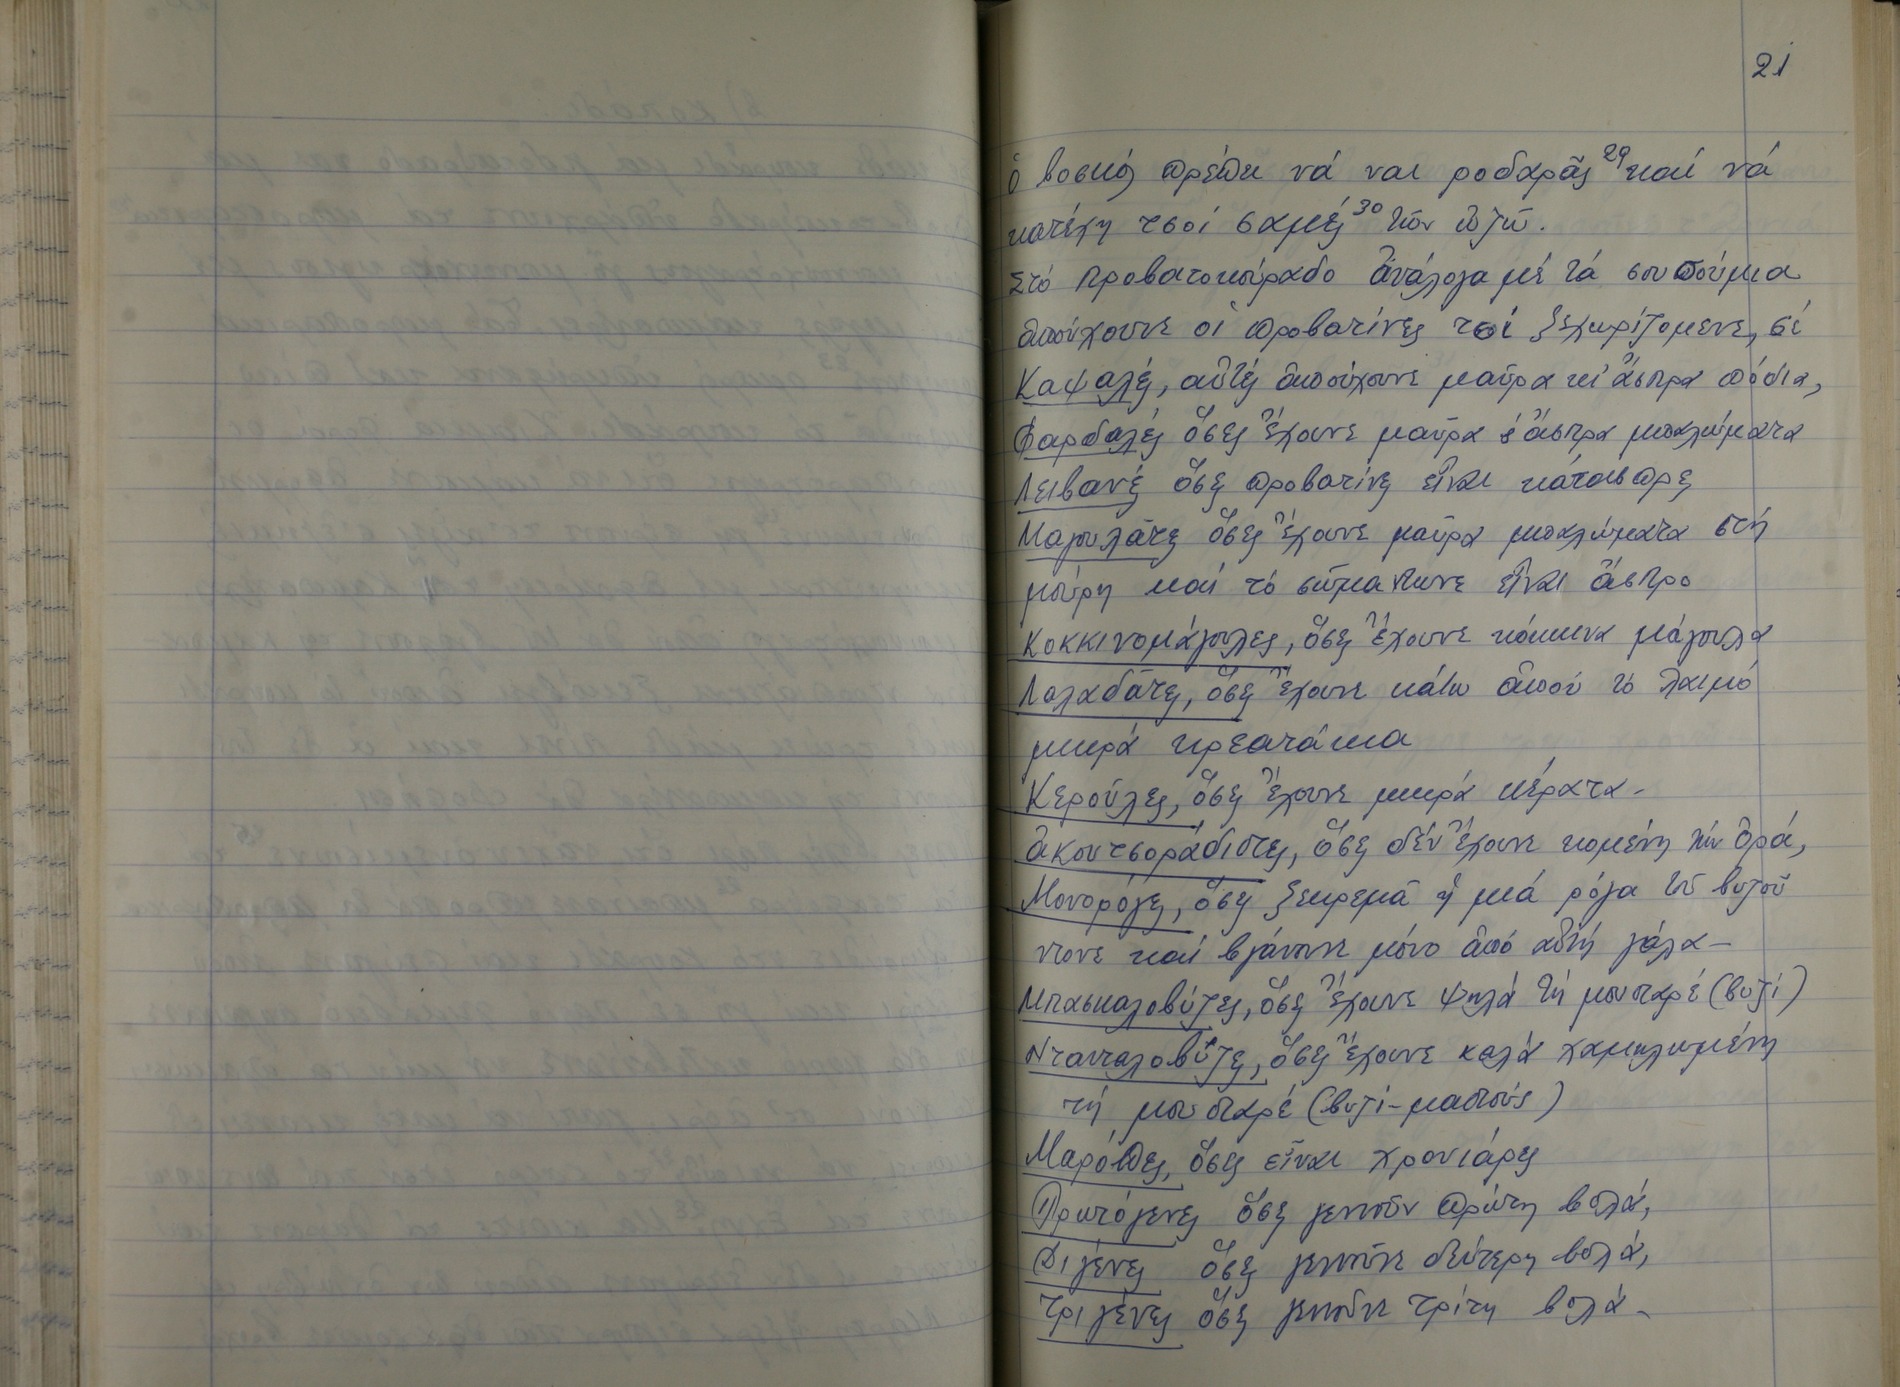 21
ὁ βοσκός πρέπει νά ναι ροδαρᾶς²⁹ καί νά
κατέχη τσοί σαμές³⁰ τῶν ὀζῶ.
Στό προβατοκούραδο ἀνάλογα μέ τά σουσούμια
ἁπούχουνε οἱ προβατίνες τσί ξεχωρίζομενε, σέ
Καψαλές, αὐτές ἁπούχουνε μαῦρα κι' ἄσπρα πόδια,
Φαρδαλές ὅσες ἔχουνε μαῦρα ἄσπρα μπαλώματα
Λειβανές ὅσες προβατίνες εἶναι κάτασπρες
Μαγουλάτες ὅσες ἔχουνε μαῦρα μπαλώματα στή
μούρη καί τό σῶμα ντωνε εἶναι ἄσπρο
Κοκκινομάγουλες, ὅσες ἔχουνε κόκκινα μάγουλα
Λαλαδάτες, ὅσες ἔχουνε κάτω ἀπού τό λαιμό
μικρά κρεατάκια
Κερούλες, ὅσες ἔχουνε μικρά κέρατα-
ἀκουτσοράδιστες, ὅσες δέν ἔχουνε κομένη τήν ὀρά,
Μονορόγες, ὅσες ξεκρεμᾶ ἡ μιά ρόγα τοῦ βυζοῦ
ντονε καί βγάνουνε μόνο ἀπό αὐτή γάλα-
Μπασκαλοβύζες, ὅσες ἔχουνε ψηλά τή μουσταρέ (βυζί)
Ντανταλοβύζες, ὅσες ἔχουνε καλά χαμηλωμένη
τή μουσταρέ (βυζί-μαστούς)
Μαρόπες, ὅσες εἶναι χρονιάρες
Πρωτόγενες ὅσες γεννοῦν πρώτη βολά,
Διγένες ὅσες γεννοῦνε δεύτερη βολά,
τριγένες ὅσες γεννοῦνε τρίτη βολά-